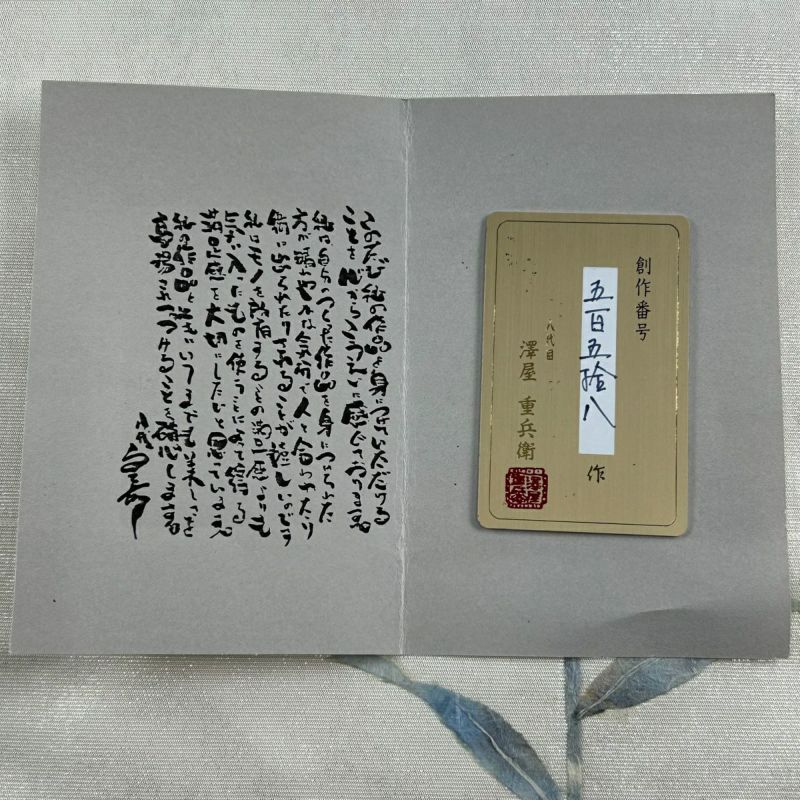 このたび私の作品を身につけていただける
ことを心からこうえいに感じております。
私は自分のつくった作品を身につけられた
方が晴れやかな気分で人と会われたり
街に出られたりされることが嬉しいのです
私はモノを所有する、その満足感よりも
気に入ったものを使うことによって得る
満足感を大切にしたいと思っています。
私の作品と共にいつまでも美しさを
高揚しつづけることを確心します。
八代
創作番号
五百五拾八
作
八代目
澤屋 重兵衛